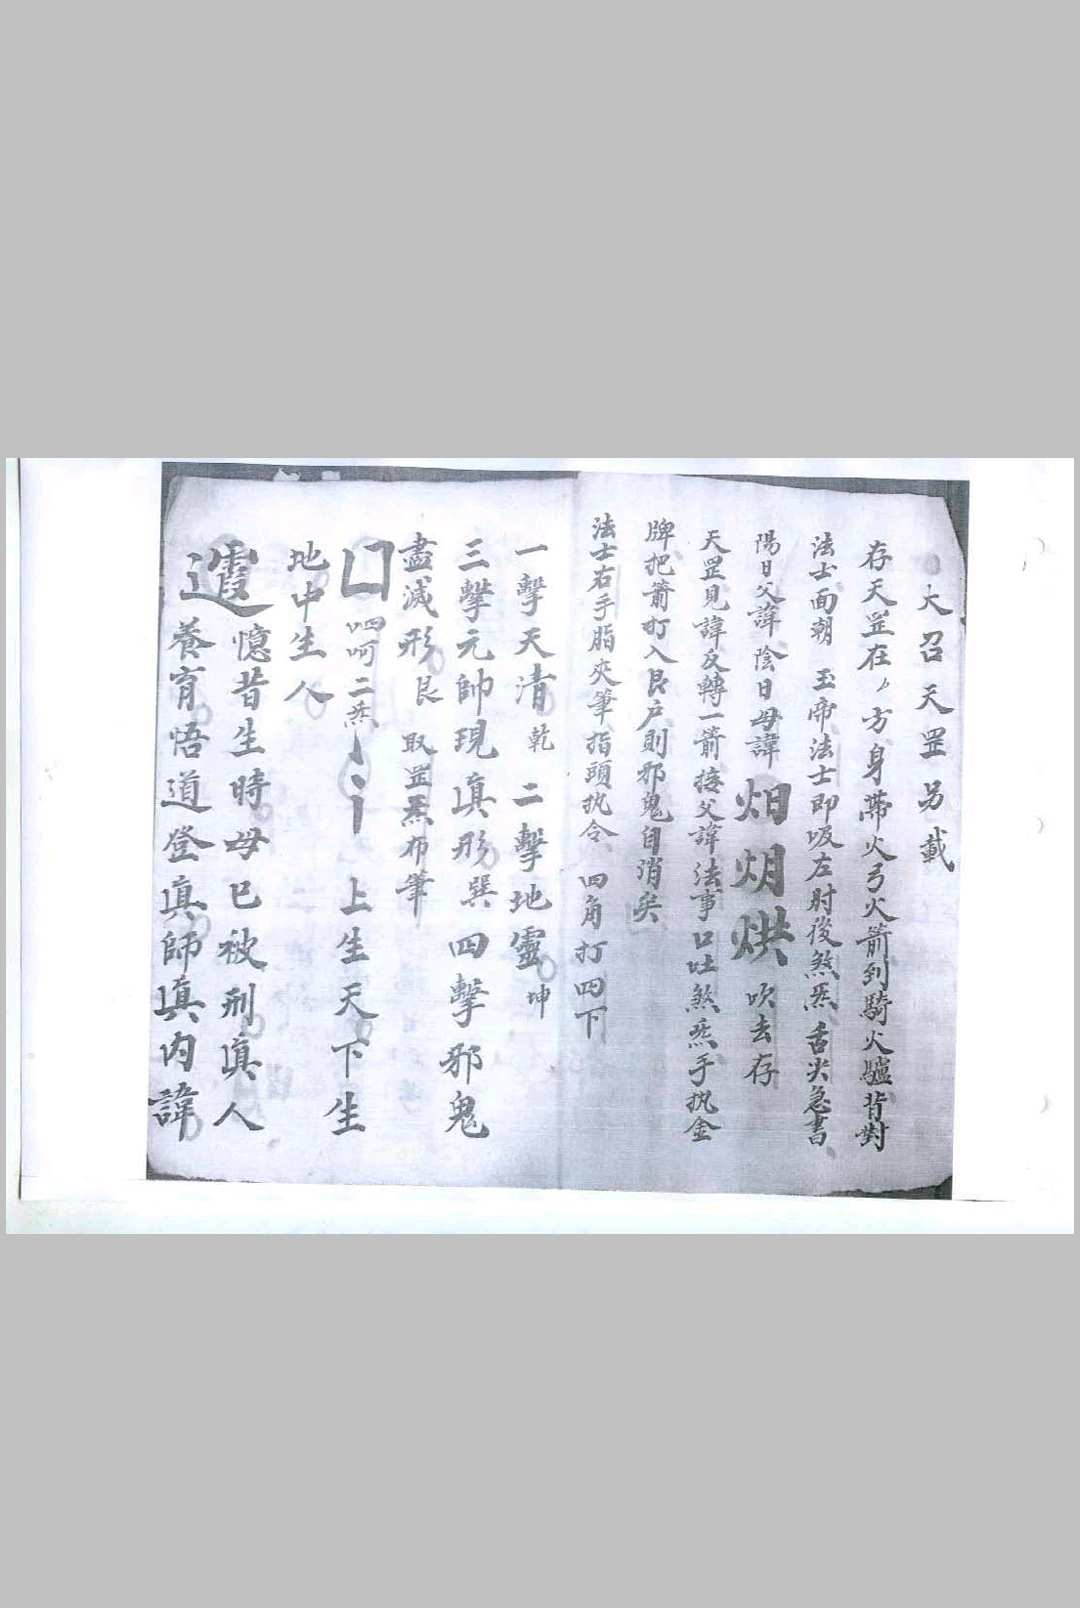 大召天罡另載
存天罡在〃方身帶火弓火箭到騎火驢背對
法士面朝 玉帝法士即吸左肘後煞炁舌尖急書
陽日父諱陰日母諱 炪烪烘 吹去存
天罡見諱反轉一箭接父諱法事口吐煞炁手执金
牌把箭打入艮户則邪鬼自消矣
法士右手脂夾筆指頭执令 四角打四下
一擊天清 乾 二擊地靈 坤
三擊元帥現真形巽 四擊邪鬼
盡滅形艮 取罡炁布筆
呬呵二炁 上生天下生
地中生人
憶昔生時母已被刑真人
養育悟道登真師真内諱